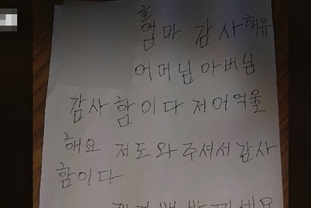 엄마 감사해유
어머님 아버님
감사 함이다 저어억울
해요 저도와주셔서 감사
함이다